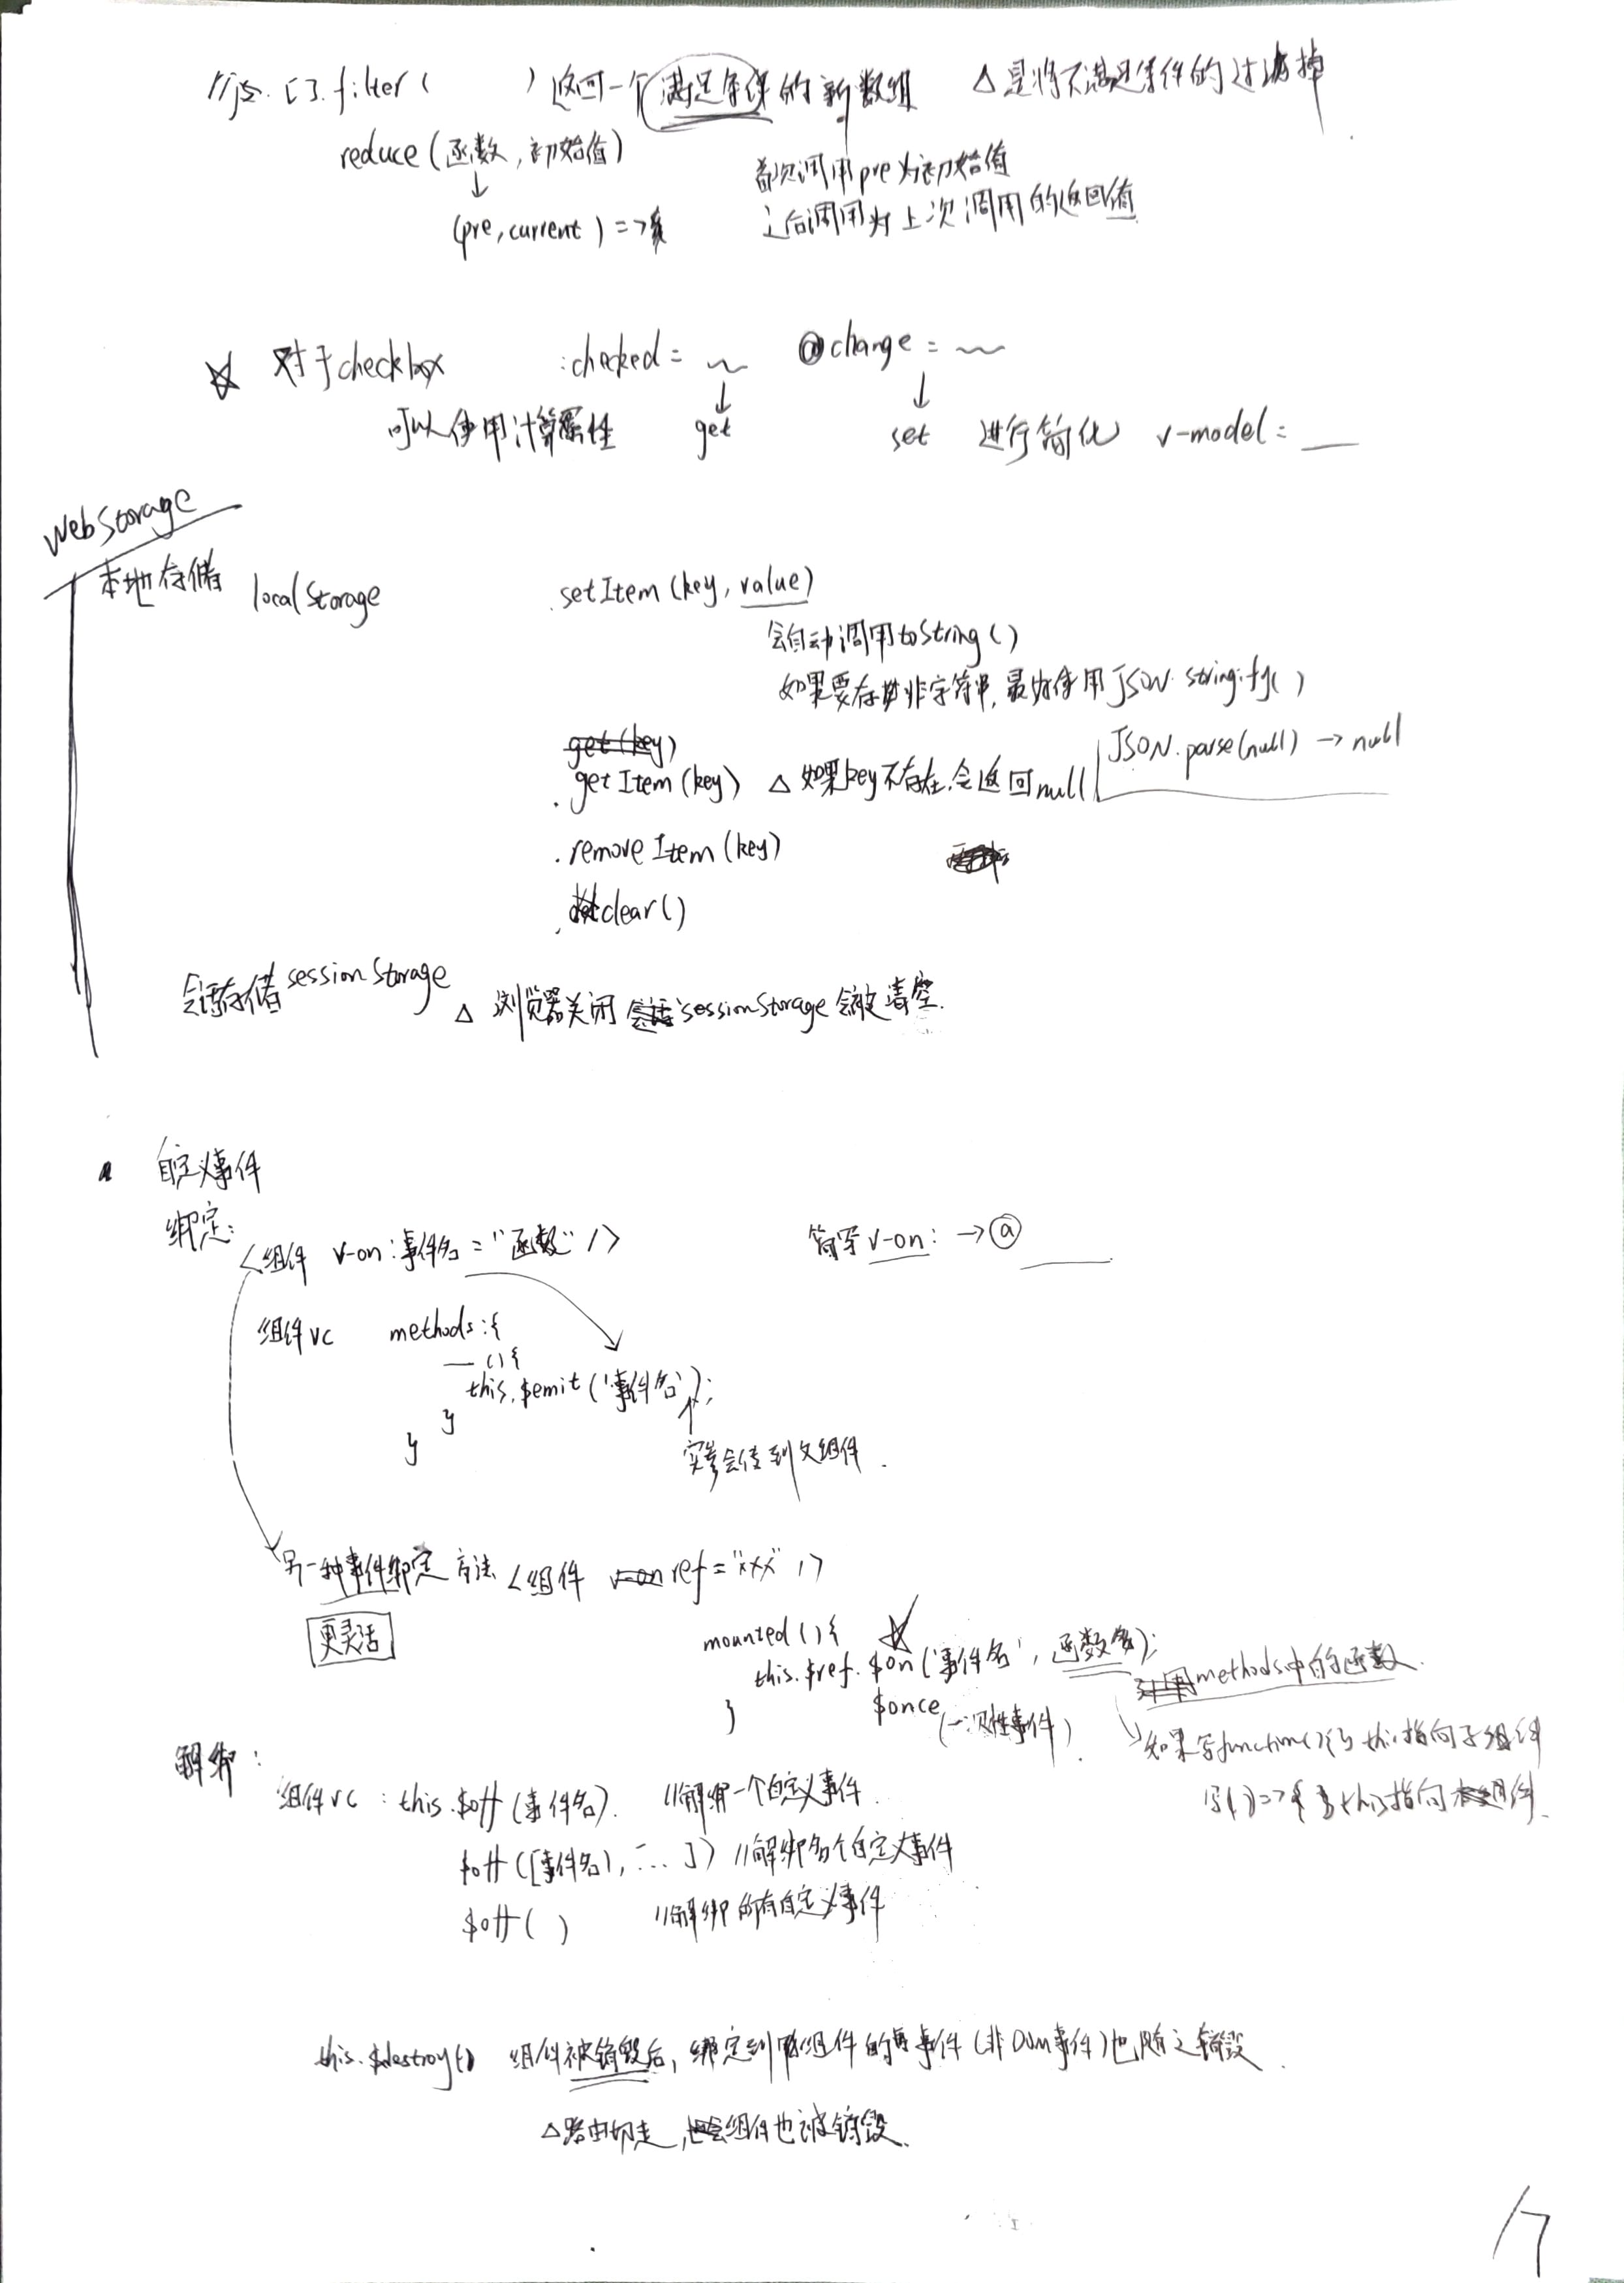 //js. [].filter( ) 返回一个满足条件的新数组 △是将不满足条件的过滤掉
reduce(函数,初始值)
首次调用pre为初始值
↓
之后调用为上次调用的返回值
(pre,current) =>
☆ 对于checkbox :checked = ~ @change = ~
↓ ↓
可以使用计算属性 get set 进行简化 v-model = __
WebStorage
本地存储 localStorage .setItem(key, value)
会自动调用toString()
如果要存非字符串,最好使用JSON.stringify()
get(key)
.getItem(key) △ 如果key不存在,会返回null JSON.parse(null) → null
.removeItem(key)
.clear()
会话存储sessionStorage △ 浏览器关闭 sessionStorage会被清空.
自定义事件
绑定:
<组件 v-on:事件名="函数" /> 简写 v-on: → @ __
组件vc methods:{
__ (){
this.$emit('事件名');
}
}
实参会传到父组件.
另一种事件绑定方法 <组件 ref="xxx" />
更灵活
mounted(){ ☆
this.$ref.$on('事件名', 函数名);
methods中的函数.
} $once(一次性事件).
如果写function(){} this指向子组件
写()=>{ } this指向组件.
解绑:
组件vc : this.$off(事件名). //解绑一个自定义事件.
$off([事件名), ... ]) //解绑多个自定义事件
$off( ) //解绑所有自定义事件
this.$destroy() 组件被销毁后,绑定到组件的事件(非Dom事件)也随之销毁.
△路由切走,组件也被销毁.
17